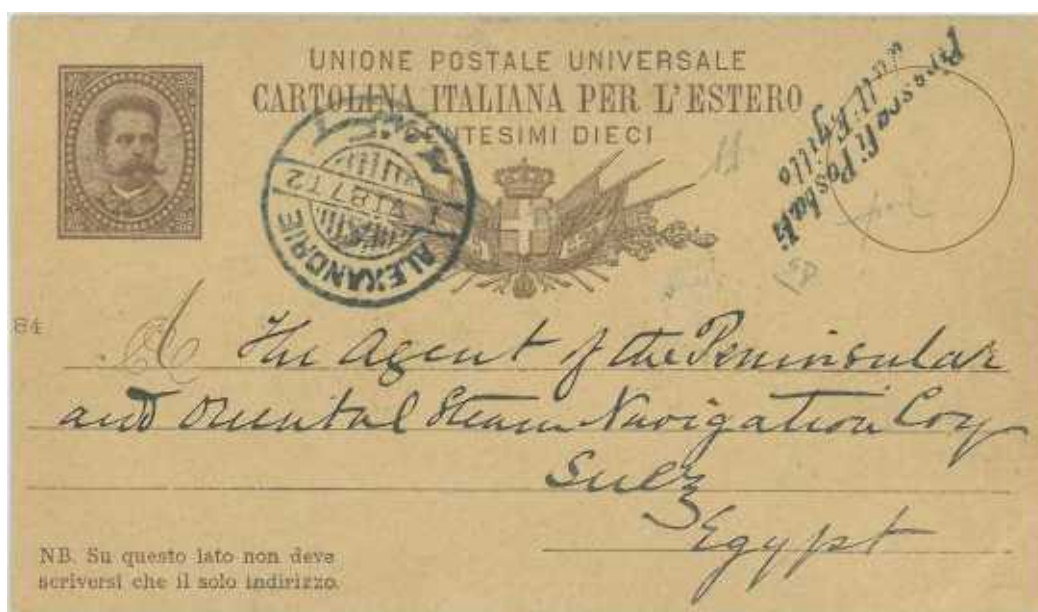 UNIONE POSTALE UNIVERSALE
CARTOLINA ITALIANA PER L'ESTERO
CENTESIMI DIECI
Piroscafi Postali
dall' Egitto
ALEXANDRIE
VI 87 T2
84
A The Agent of the Peninsular
and Oriental Steam Navigation Coy
Suez
Egypt
NB. Su questo lato non deve
scriversi che il solo indirizzo.